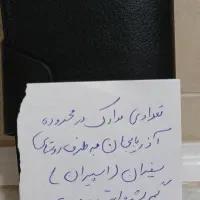 تعدادی مدارک در محدوده
آذربایجان به طرف روستای
سفیدان (اسپیران)
گم شده است